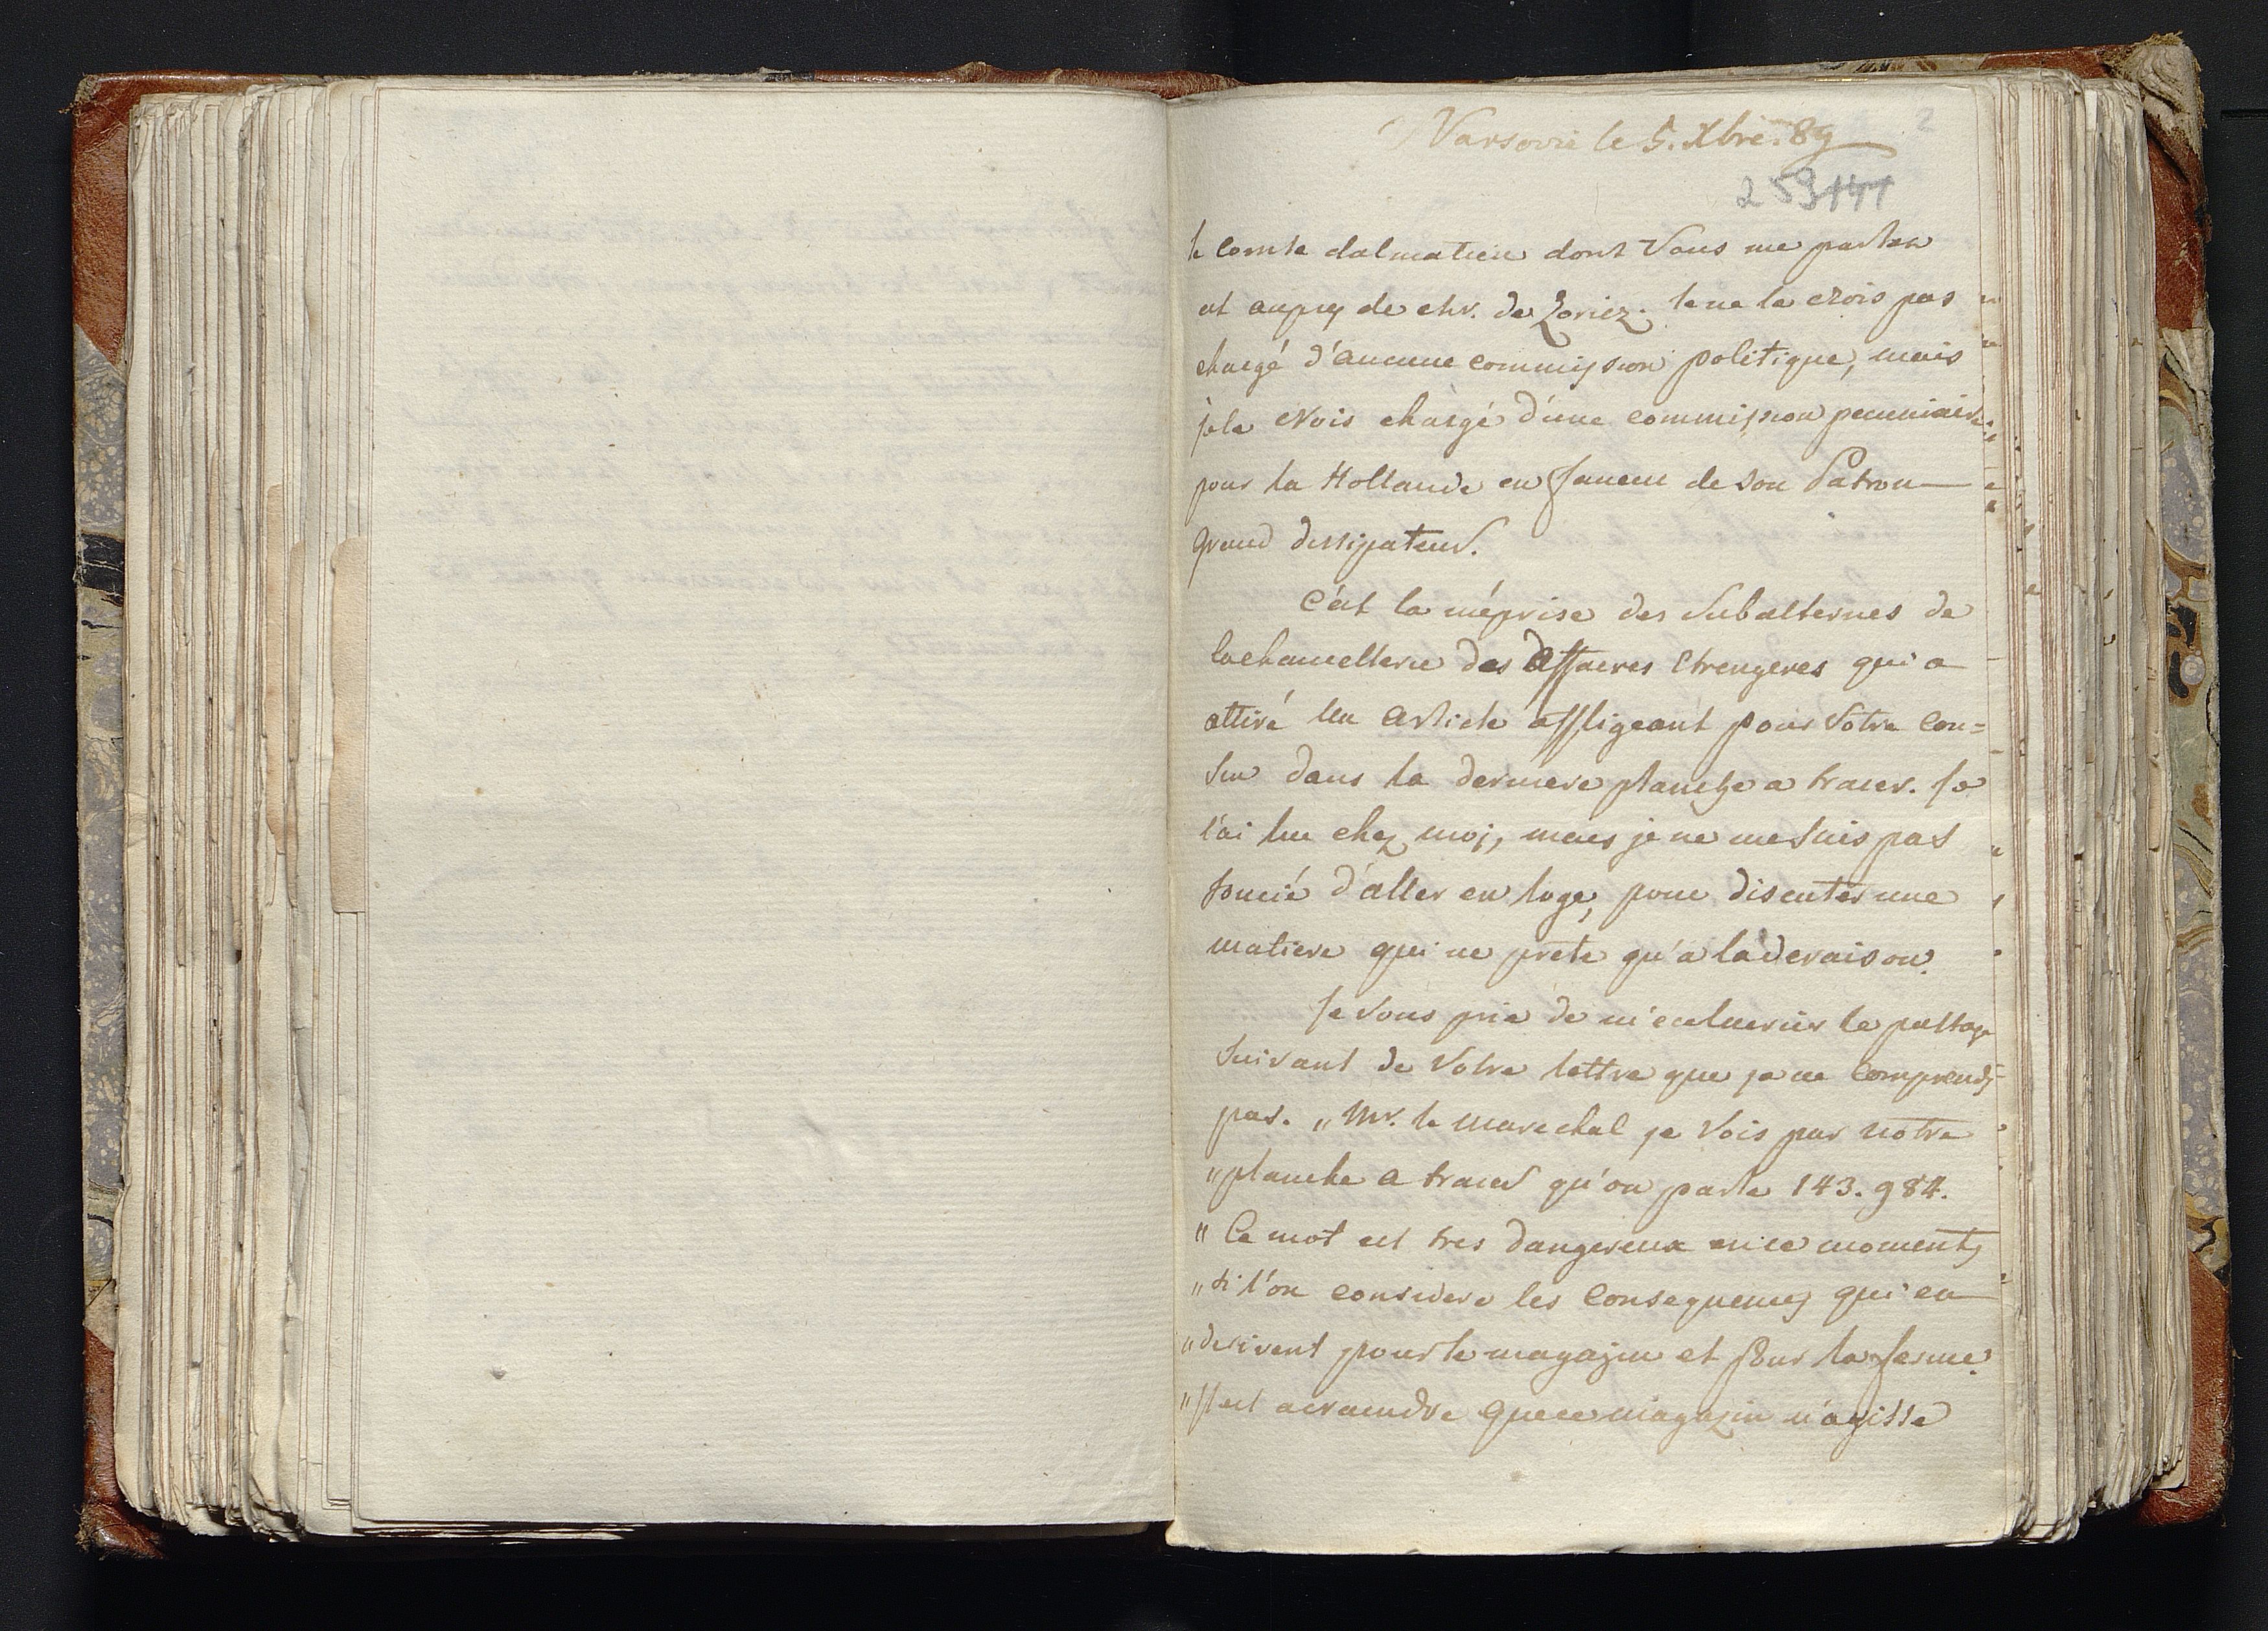 Varsovie le 5. Xbre. 89
2
259
le Comte dalmatien dont Vous me parlez
et aupres de chr. de Zoriez. Je ne le crois pas
chargé d'aucune commission politique, mais
je le crois chargé d'une commission pecuniaire
pour la Hollande en faveur de son Patron
grand dissipateur.
C'est la méprise des Subalternes de
la chancellerie des Affaires Etrengeres qui a
attiré un Article affligeant pour Votre Cou=
sin dans la derniere planche a tracer. Je
l'ai lue chez moj, mais je ne me suis pas
soucié d'aller en loge, pour discuter une
matiere qui ne prete qu'a la deraison.
Je vous prie de m'
le passage
suivant de Votre lettre que je ne comprends
pas. „ Mr. le Marechal je Vois par notre
„ planche a tracer qu'on parle 143. 984.
„ Ce mot est tres dangereux en ce moment,
„ si l'on considere les Consequences qui en
„ derivent pour le magazin et pour la ferme.
„ Il est a craindre que ce magazin n'agisse